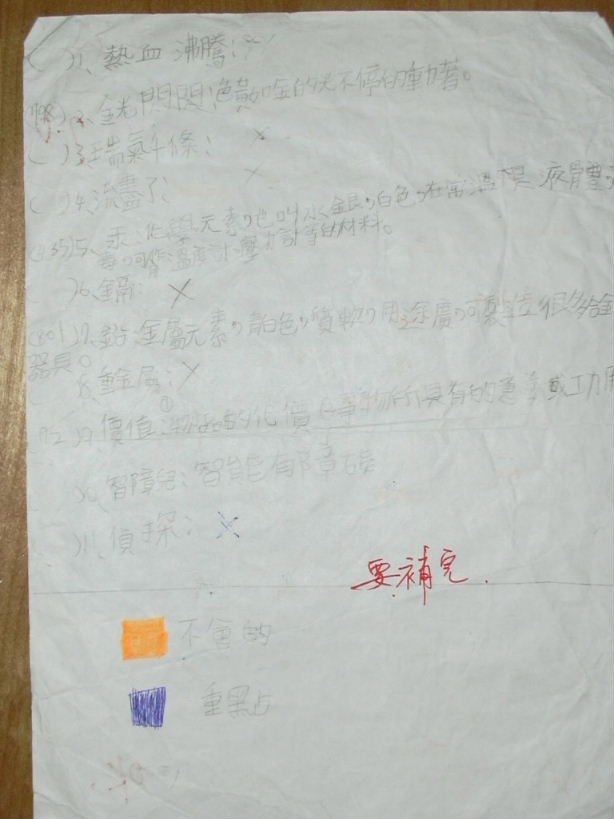 ( )1、熱血沸騰：×
(798)2、金光閃閃：色黃如金的光不停的動著。
( )3、瑞氣千條：×
( )4、流盡了：×
5、汞：化學元素，也叫水銀，白色，在常溫下是液體，
毒，可作溫度計、壓力計等的材料。
( )6、鎘：×
(801)7、鉛：金屬元素，青白色，質軟，用途廣，可製造很多
器具。
8、重金屬：×
9、價值：①物品的代價 事物所具有的意義或功用
10、智障兒：智能有障礙
11、偵探：×
要補完.
不會的
重點